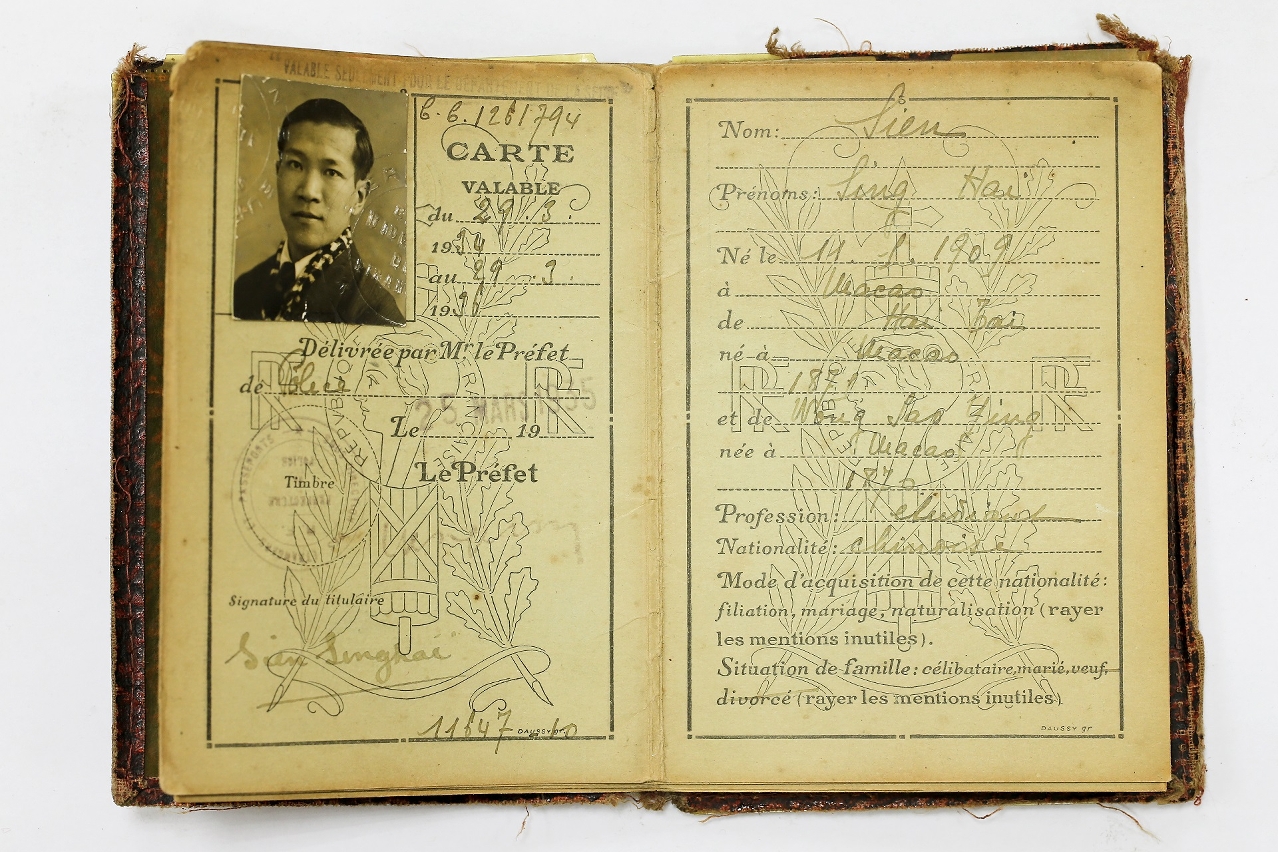 "VALABLE SEULEMENT POUR LE DÉPARTEMENT DE LA SEINE"
C.C. 1261794
CARTE
VALABLE
du 29.3.
1934
au 29.3.
1936
Délivrée par Mr. le Préfet
de Police
Le 23 MARS 1935 19
Timbre
Le Préfet
Signature du titulaire
Sien Singhaï
11547
DAUSSY gr.
Nom: Sien
Prénoms: Sing Hai
Né le 1909
à Macao
de Hai Zai
né à Macao
et de Wong Tao Zing
née à Macao
Profession: étudiant
Nationalité: chinoise
Mode d'acquisition de cette nationalité:
filiation, mariage, naturalisation (rayer
les mentions inutiles).
Situation de famille: célibataire, marié, veuf,
divorcé (rayer les mentions inutiles)
DAUSSY gr
RF
RÉPUBLIQUE FRANÇAISE
RF
RF
RF